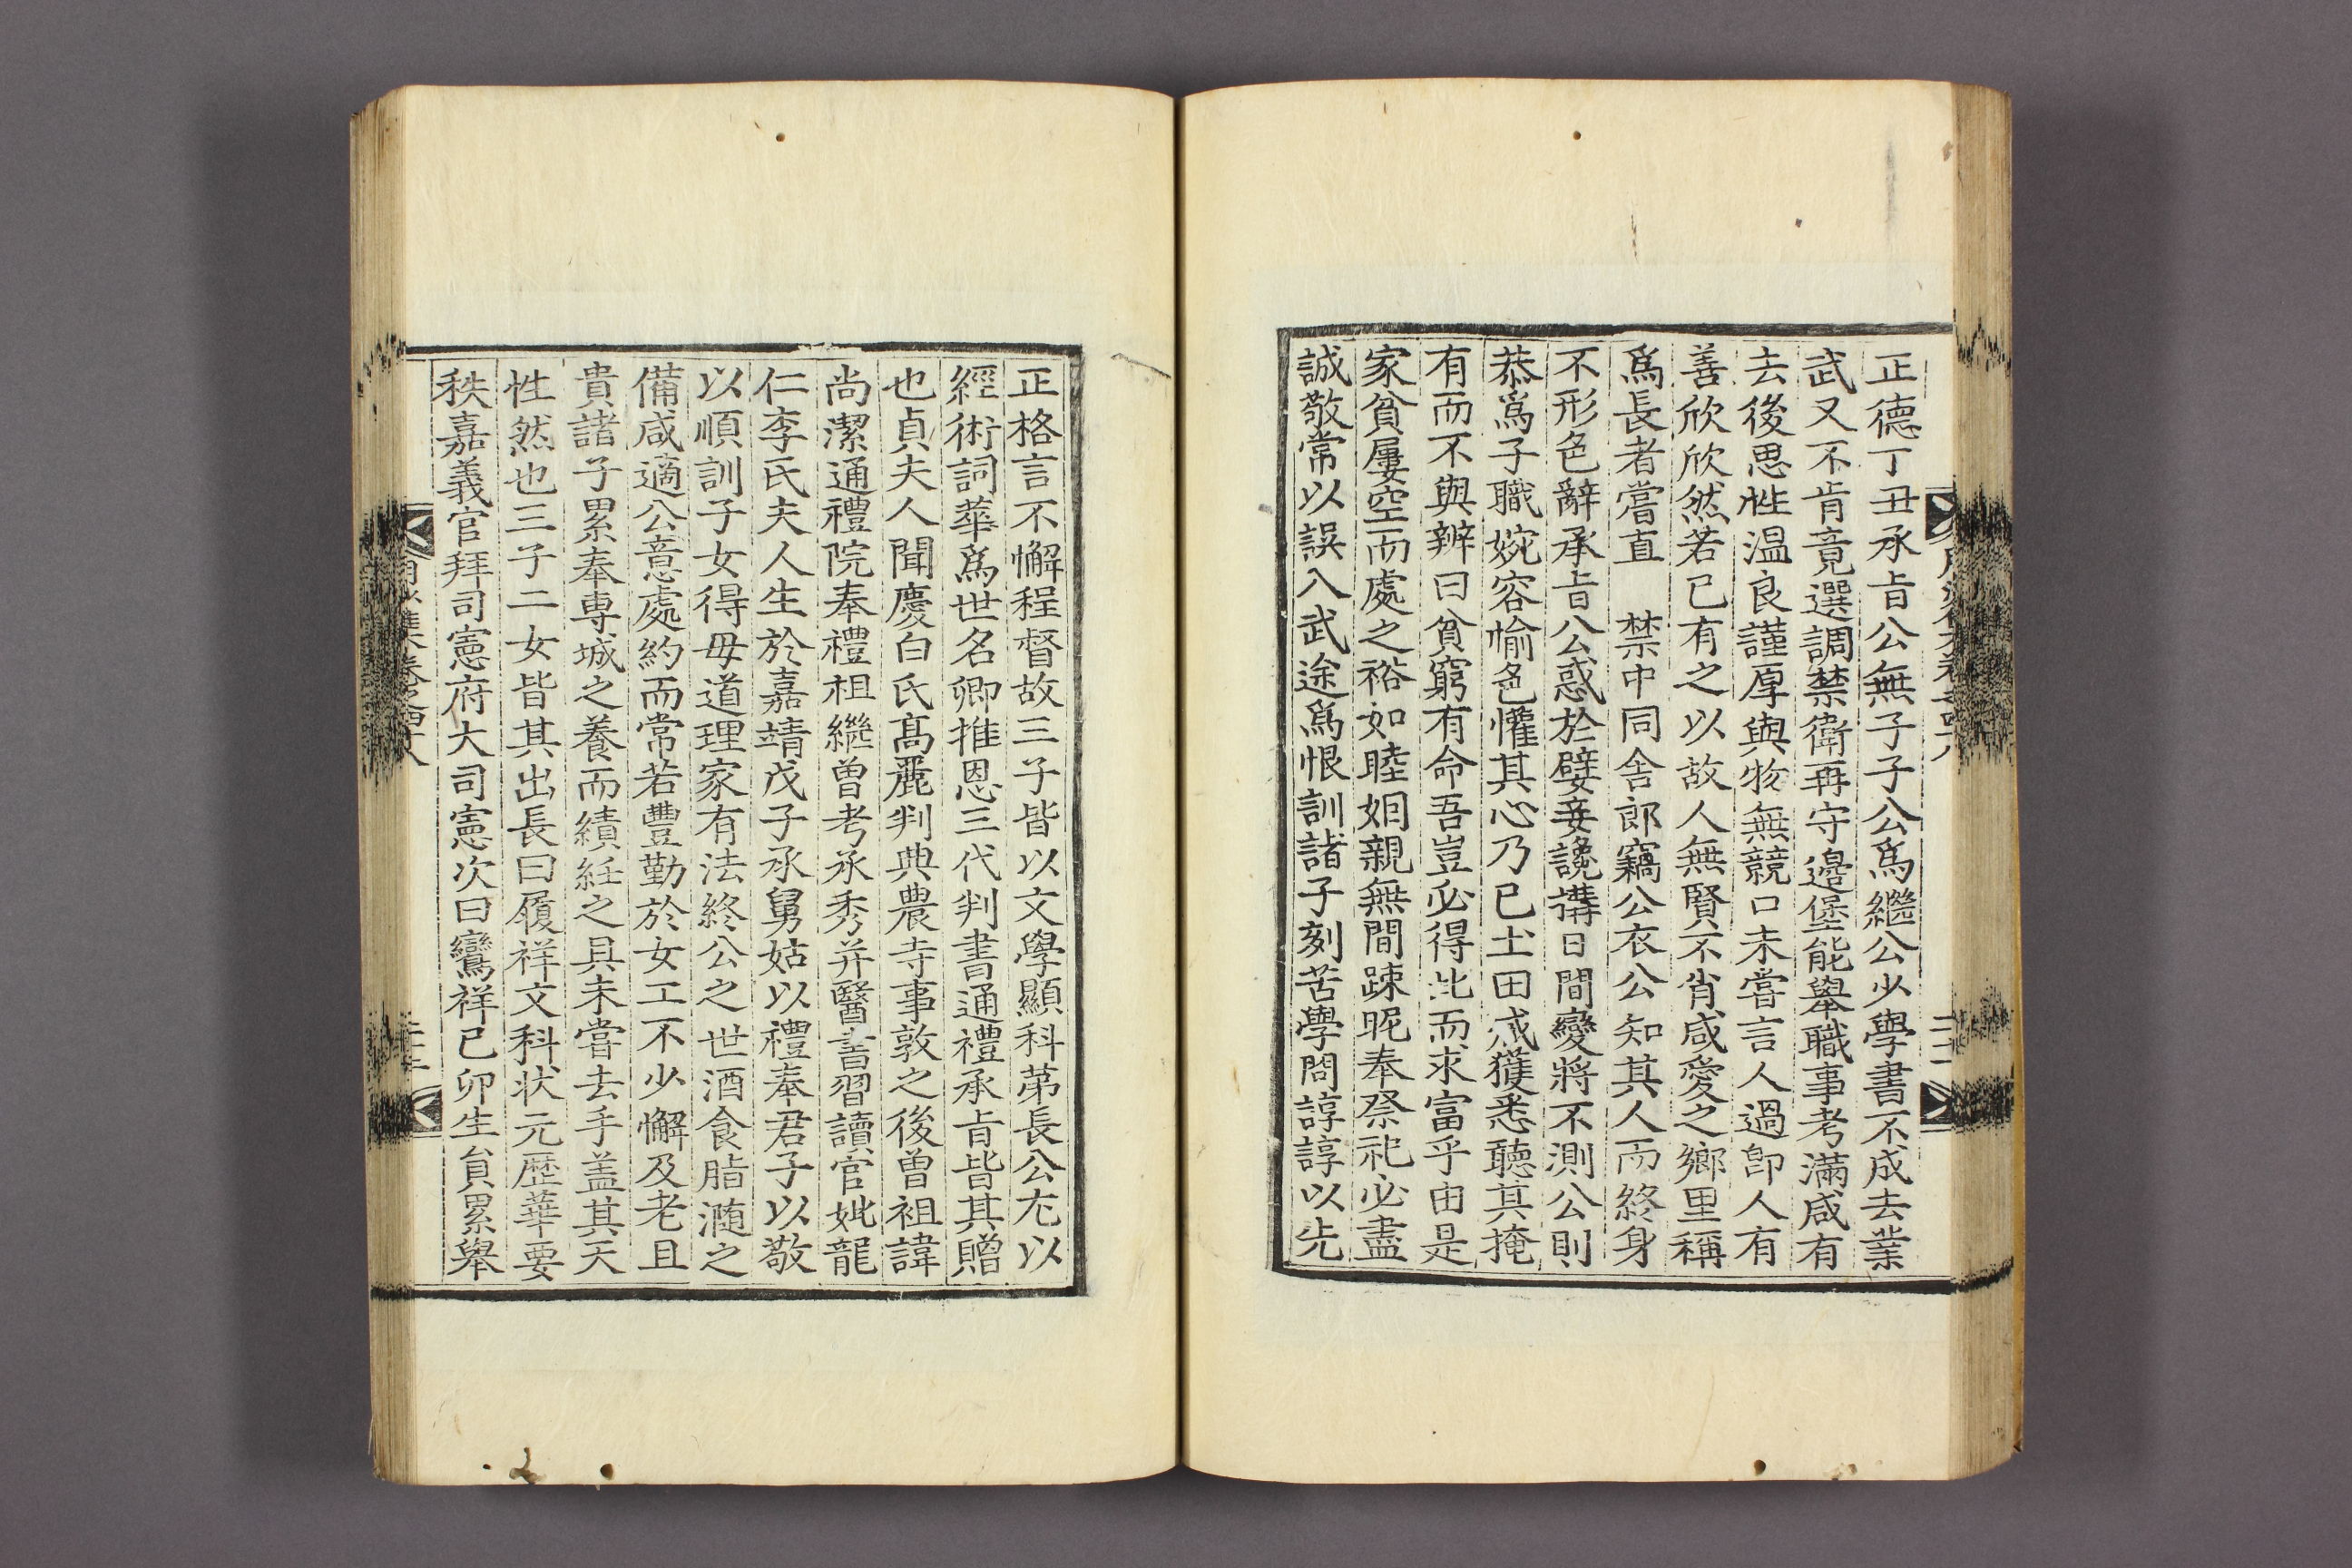 正德丁丑承㫖公無子子公爲繼公少學書不成去業
武又不肯竟選調禁衛再守邉堡能舉職事考滿咸有
去後思性溫良謹厚與物無競口未嘗言人過卽人有
善欣欣然若已有之以故人無賢不肖咸愛之鄕里稱
爲長者嘗直　禁中同舍郎竊公衣公知其人而終身
不形色辭承㫖公惑於嬖妾讒講日間變將不測公則
恭爲子職婉容愉色懽其心乃已土田戓獲悉聽其掩
有而不與辨曰貧窮有命吾豈必得此而求富乎由是
家貧屢空而處之裕如睦婣親無間踈昵奉祭祀必盡
誠敬常以誤入武途爲恨訓諸子刻苦學問諄諄以先
正格言不懈程督故三子皆以文學顯科第長公尤以
經術詞華爲世名卿推恩三代判書通禮承㫖皆其贈
也貞夫人聞慶白氏髙麗判典農寺事敦之後曽祖諱
尚潔通禮院奉禮祖繼曽考承秀幷醫書習讀官妣龍
仁李氏夫人生於嘉靖戊子承舅姑以禮奉君子以敬
以順訓子女得毋道理家有法終公之世酒食脂瀡之
備咸適公意處約而常若豐勤於女工不少懈及老且
貴諸子累奉専城之養而績絍之具未嘗去手盖其天
性然也三子二女皆其出長曰履祥文科状元歴華要
秩嘉義官拜司憲府大司憲次曰鸞祥已卯生貟累舉